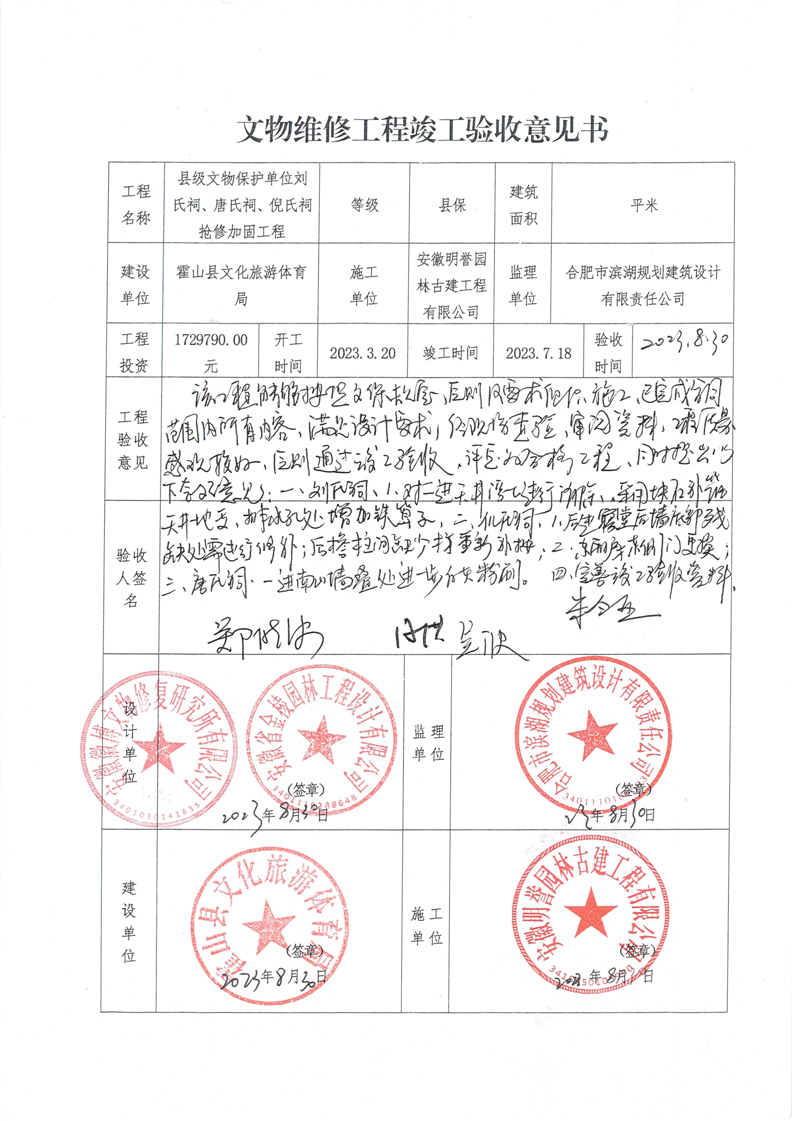 文物维修工程竣工验收意见书
工程名称
县级文物保护单位刘氏祠、唐氏祠、倪氏祠抢修加固工程
等级
县保
建筑面积
平米
建设单位
霍山县文化旅游体育局
施工单位
安徽明誉园林古建工程有限公司
监理单位
合肥市滨湖规划建筑设计有限责任公司
工程投资
1729790.00元
开工时间
2023.3.20
竣工时间
2023.7.18
验收时间
2023.8.30
工程验收意见
该工程能够按照文保程序、原则及要求组织施工,已完成合同
范围内所有内容,满足设计要求,经现场查验,审阅资料,工程质量
感观较好,原则通过竣工验收,评定为合格工程,同时提出以
下意见:一、刘氏祠、1.对一进天井淤泥进行清除,采用块石补铺
天井地面,排水孔处增加铁箅子,二、倪氏祠,1.后进寝堂后墙底部残
缺处需进行修补;后檐柱间缺少枋重新补换;2.东厢房门更换;
三、唐氏祠.一进南山墙处进一步粉刷。四.完善竣工验收资料.
验收人签名
朱
郑 洪
设计单位
安徽徽博文物修复研究所有限公司
3401030141835
安徽省金棱园林工程设计有限公司
(签章)
2023年8月30日
监理单位
合肥市滨湖规划建筑设计有限责任公司
(签章)
23年8月30日
建设单位
霍山县文化旅游体育局
(签章)
2023年8月30日
施工单位
安徽明誉园林古建工程有限公司
(签章)
2023年8月 日